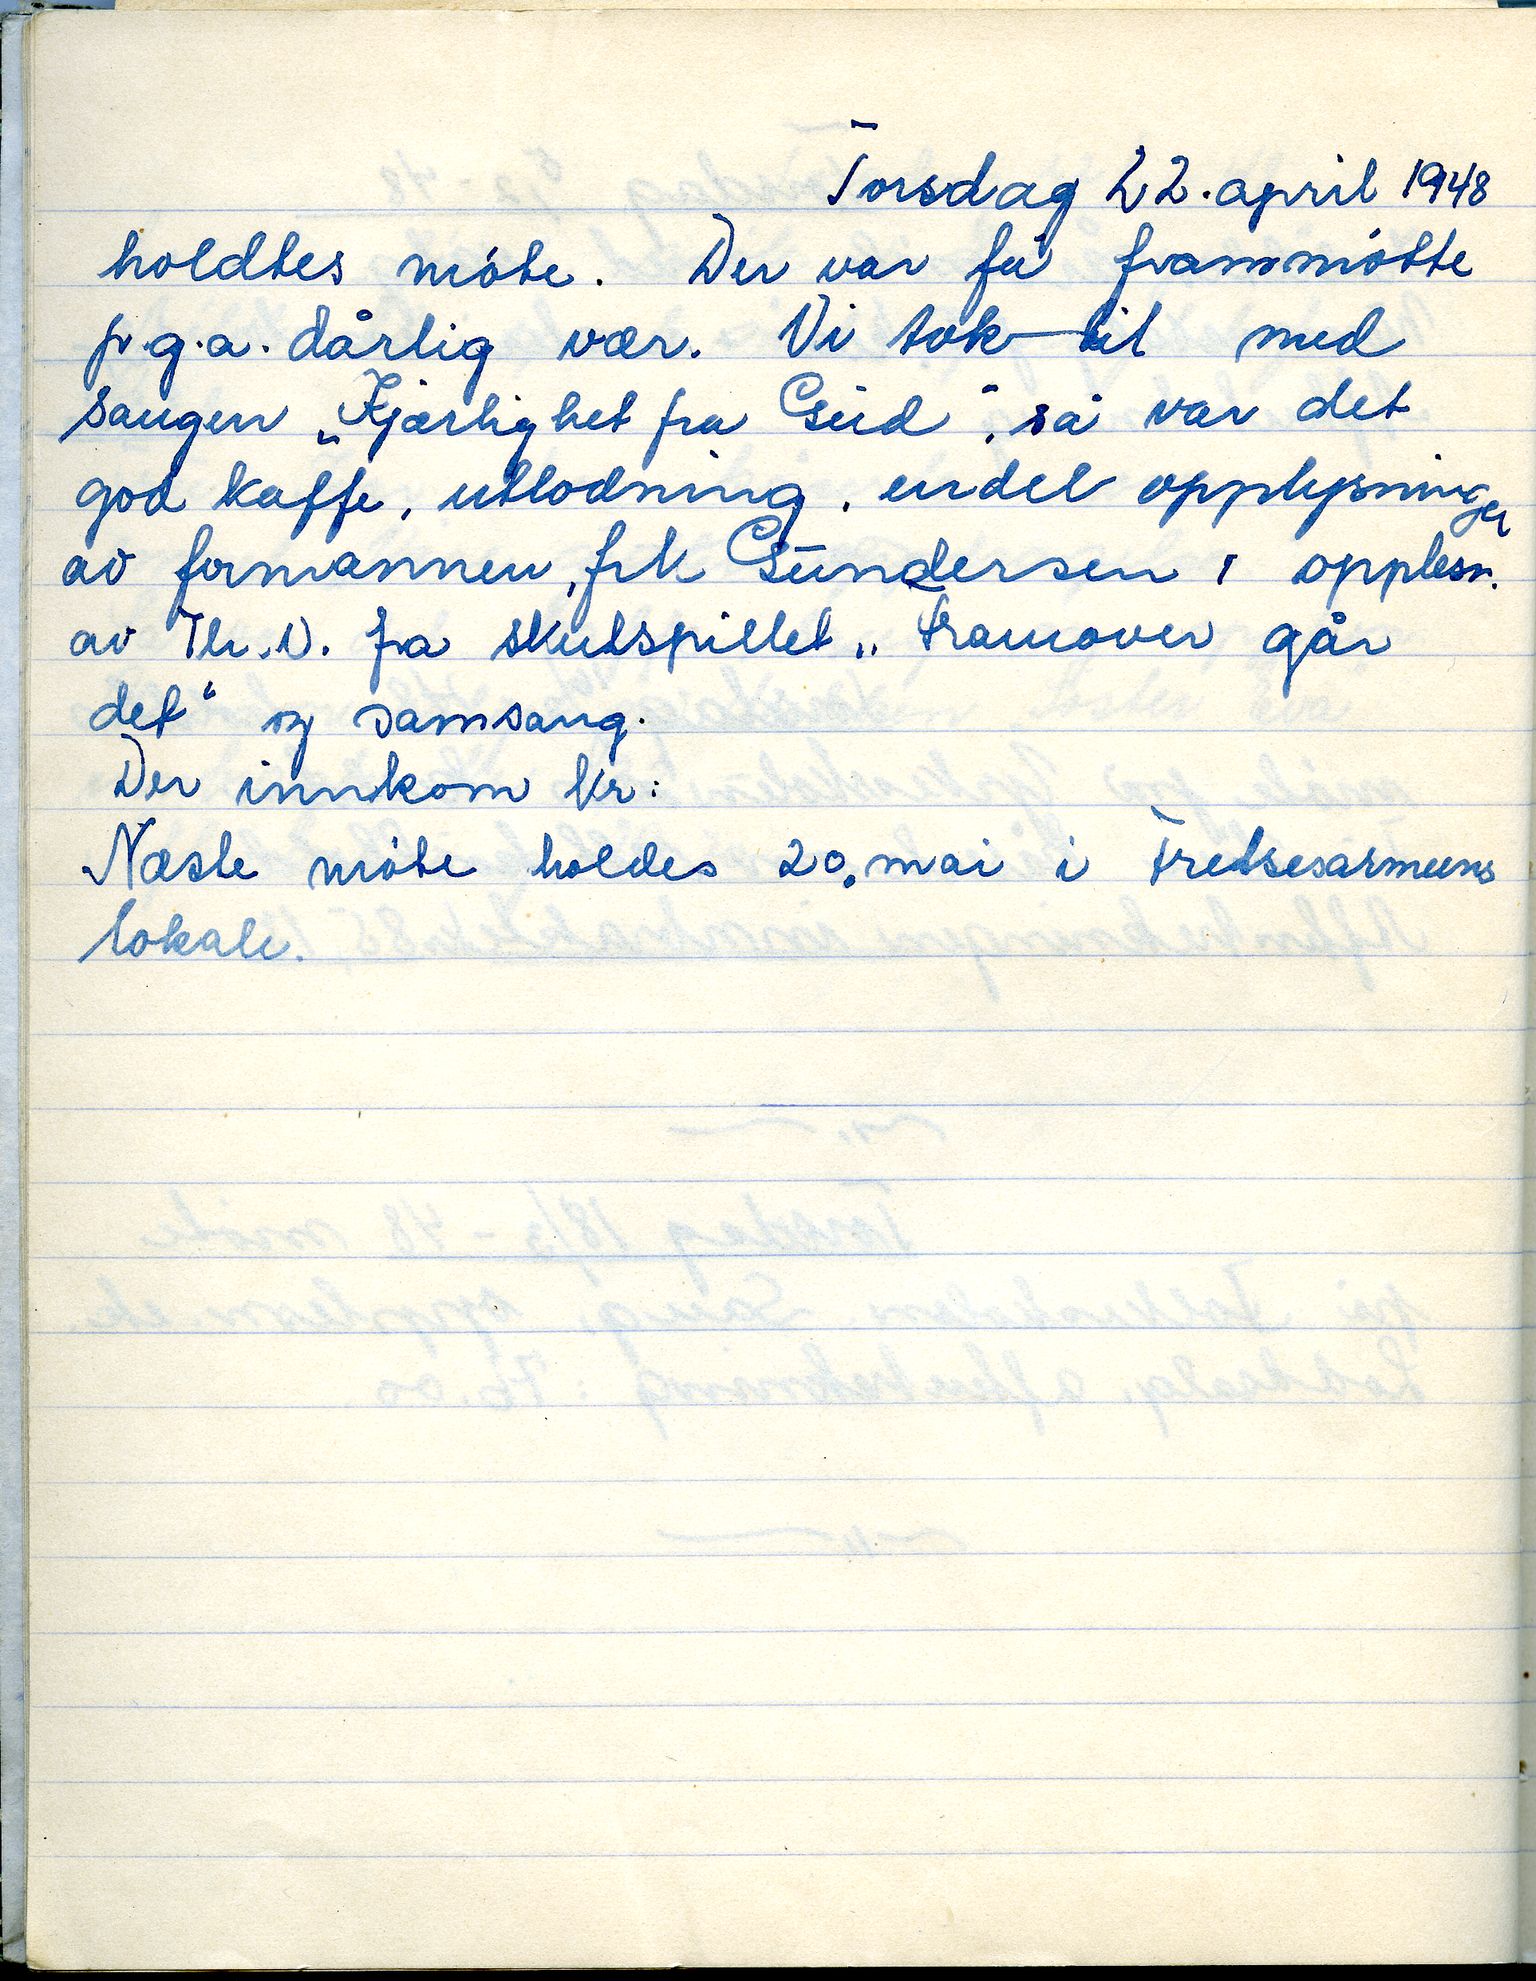 Torsdag 22. april 1948
holdtes møte. Der var få frammøtte
p.g.a. dårlig vær. Vi tok til med
sangen „Kjærlighet fra Gud", så var det
god kaffe, utlodning, endel opplysninger
av formannen, frk Gundersen, opplesn.
av Th. N. fra skuespillet „Framover går
det" og samsang.
Der innkom kr:
Næste møte holdes 20. mai i Frelsesarmeens
lokale.